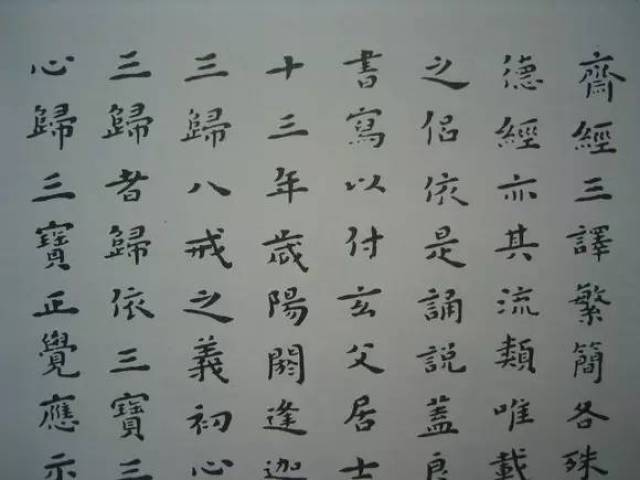 齋經三譯繁簡各殊
德經亦其流類唯載
之侣依是誦説蓋良
書寫以付玄父居士
十三年歲陽閼逢迦
三歸八戒之義初心
三歸者歸依三寶三
心歸三寶正覺應示